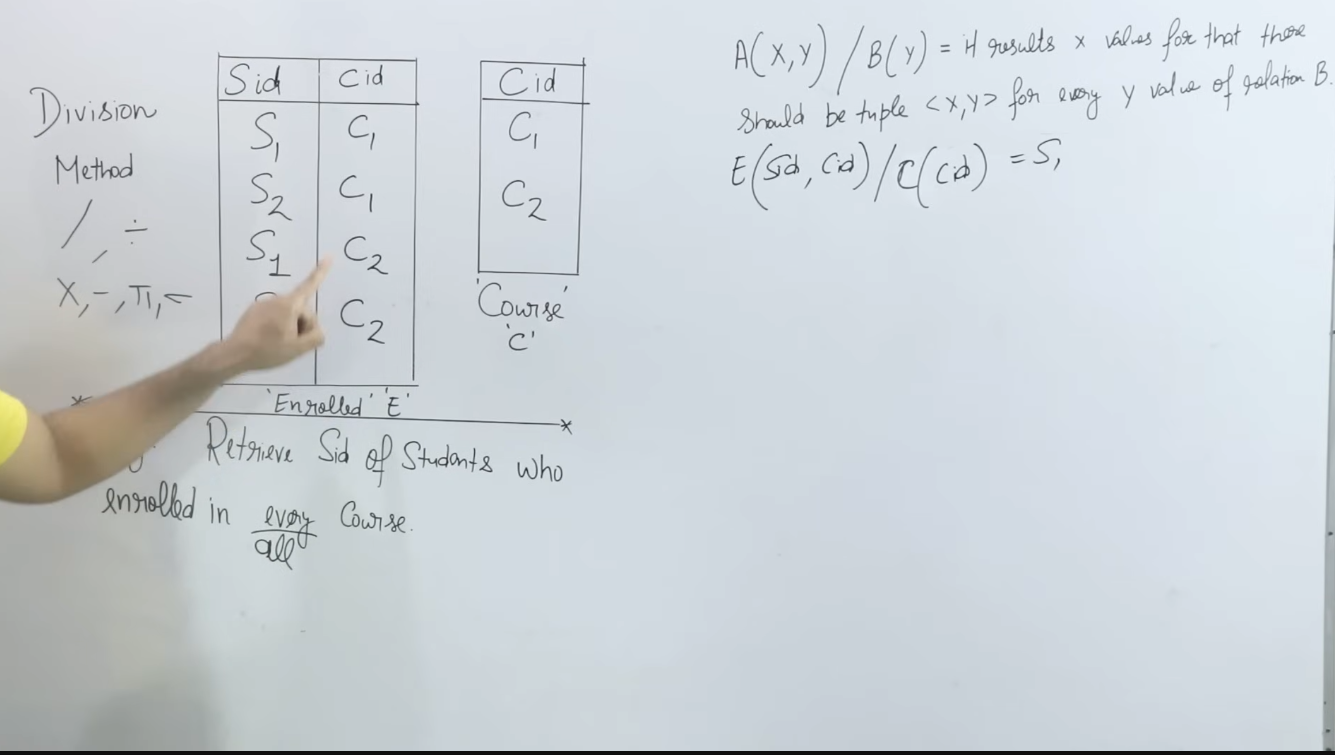 Division
Method
/, ÷
X, -, π, -
Sid Cid
S1 C1
S2 C1
S1 C2
C2
'Enrolled' 'E'
Cid
C1
C2
'Course'
'C'
Retrieve Sid of Students who
enrolled in every Course.
all
A(X,Y) / B(Y) = It results x values for that there
should be tuple <X,Y> for every y value of relation B.
E(Sid, Cid) / C(Cid) = S1